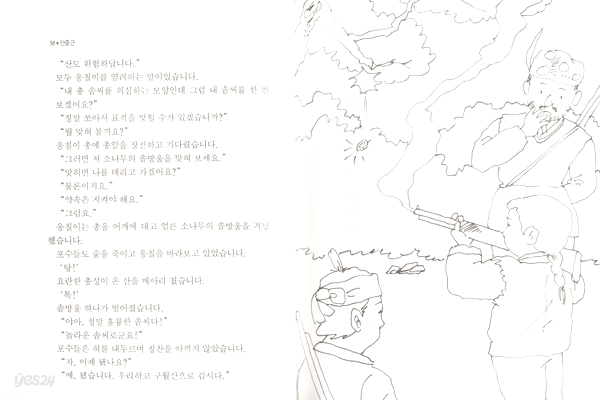 50 • 안중근
“산도 위험하답니다.”
모두 응칠이를 염려하는 말이었습니다.
“내 총 솜씨를 의심하는 모양인데 그럼 내 솜씨를 한 번
보겠어요?”
“정말 쏘아서 표적을 맞힐 수가 있겠습니까?”
“뭘 맞혀 볼까요?”
응칠이 총에 총알을 장전하고 기다렸습니다.
“그러면 저 소나무의 솔방울을 맞혀 보세요.”
“맞히면 나를 데리고 가겠어요?”
“물론이지요.”
“약속은 지켜야 해요.”
“그럼요.”
응칠이는 총을 어깨에 대고 얼른 소나무의 솔방울을 겨냥
했습니다.
포수들도 숨을 죽이고 응칠을 바라보고 있었습니다.
‘탕!’
요란한 총성이 온 산을 메아리 쳤습니다.
‘톡!’
솔방울 하나가 떨어졌습니다.
“야아, 정말 훌륭한 솜씨다!”
“놀라운 솜씨로군요!”
포수들은 혀를 내두르며 칭찬을 아끼지 않았습니다.
“자, 이제 됐나요?”
“예, 됐습니다. 우리하고 구월산으로 갑시다.”
yes24